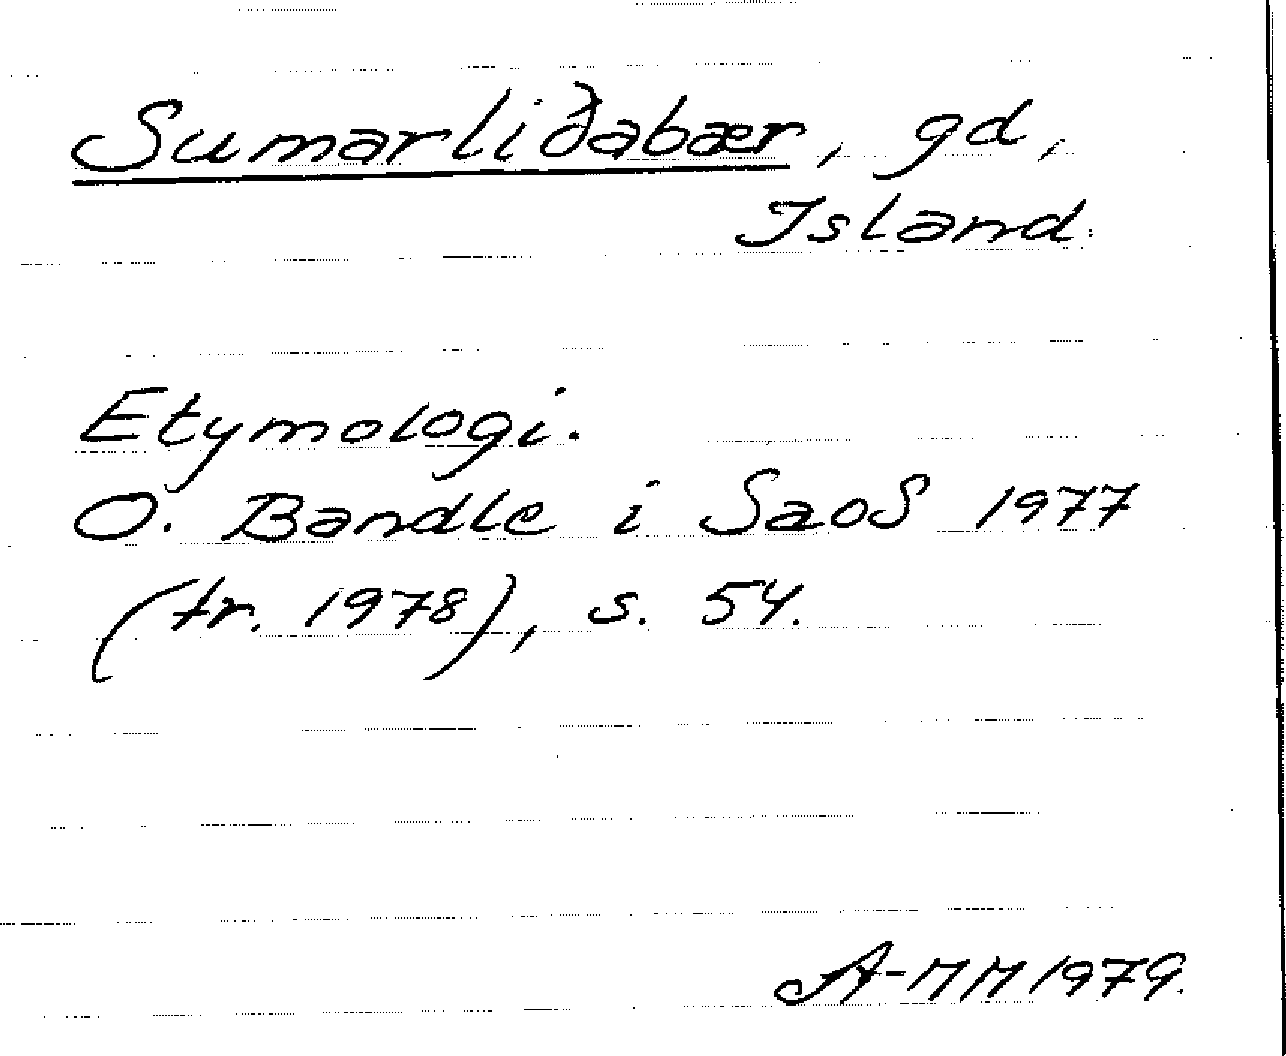 Sumarliðabær, gd,
Island.
Etymologi.
O. Bandle i SaoS 1977
(tr. 1978), s. 54.
A-MM 1979.